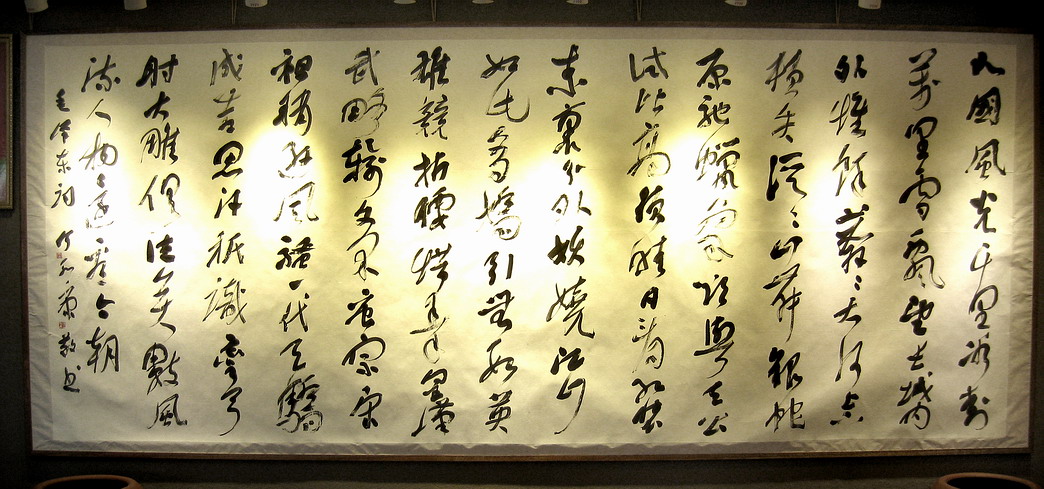 北國風光千里冰封
萬里雪飄望長城内
外惟餘莽々大河上下
頓失滔々山舞銀蛇
原馳蠟象欲與天公
試比高須晴日看紅裝
素裹分外妖嬈江山
如此多嬌引無數英
雄競折腰惜秦皇漢
武略輸文采唐宗宋
祖稍遜風騷一代天驕
成吉思汗祇識彎弓
射大雕俱往矣數風
流人物還看今朝
毛澤东詞 敬书